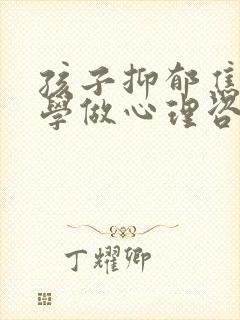 孩子抑郁焦
學做心理咨
丁耀卿